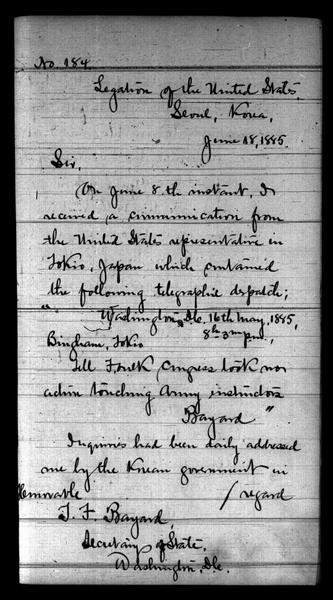 No. 184
Legation of the United States,
Seoul, Korea,
June 18, 1885.
Sir,
On June 8th instant, I
received a communication from
the United States representative in
Tokio, Japan which contained
the following telegraphic dispatch;
"Washington, D.C. 16th May, 1885,
8h 3m p.m.,
Bingham, Tokio
Tell Foulk Congress took no
action touching Army instructors
Bayard"
Inquiries had been daily addressed
me by the Korean government in
/ regard
Honorable
T. F. Bayard,
Secretary of State,
Washington, D.C.